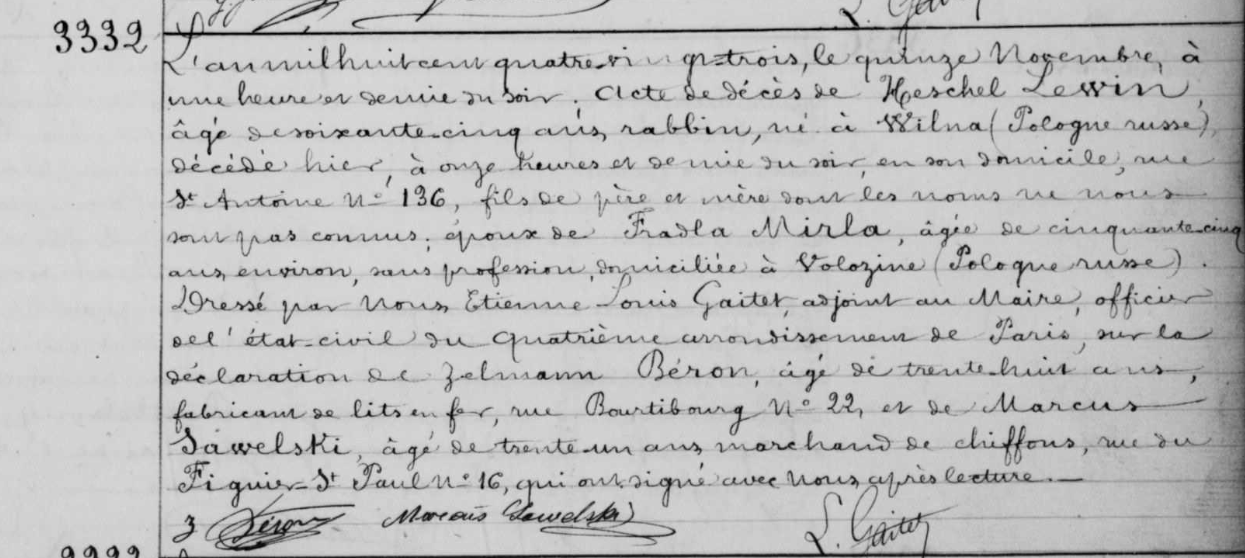 L. Gaitet
3332
L'an mil huit cent quatre-vingt-trois, le quinze Novembre, à
une heure et demie du soir, Acte de décès de Heschel Lewin,
âgé de soixante-cinq ans, rabbin, né à Wilna (Pologne russe),
décédé hier, à onze heures et demie du soir en son domicile, rue
St Antoine No 136, fils de père et mère dont les noms ne nous
sont pas connus, époux de Fradla Mirla, âgée de cinquante-cinq
ans, environ, sans profession, domiciliée à Volozine (Pologne russe).
Dressé par Nous, Etienne Louis Gaitet adjoint au Maire, officier
de l'état-civil du quatrième arrondissement de Paris, sur la
déclaration de Zelmann Béron, âgé de trente-huit ans,
fabricant de lits en fer, rue Bourtibourg No 22, et de Marcus
Sawelski, âgé de trente-un ans, marchand de chiffons, rue du
Figuier-St Paul No 16, qui ont signé avec Nous, après lecture.—
Z Béron Marcus Sawelski L. Gaitet